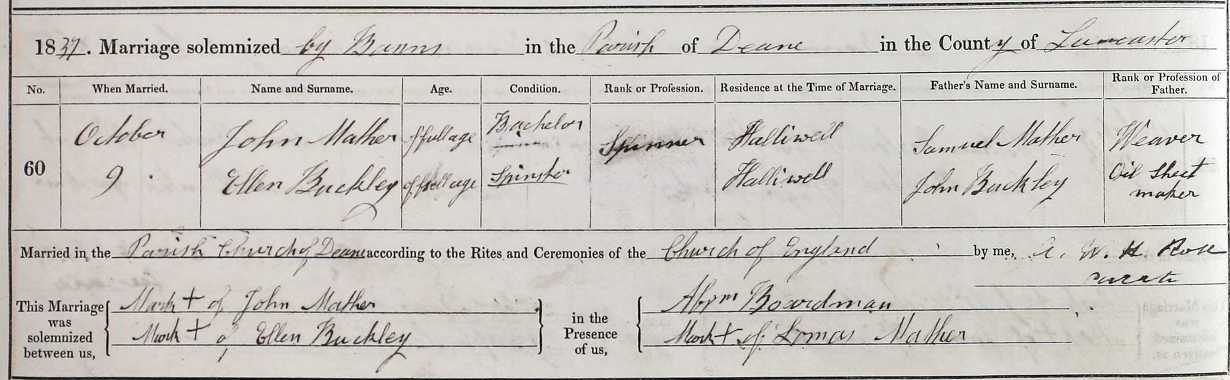 1837. Marriage solemnized by Banns in the Parish of Deane in the County of Lancaster
No. When Married. Name and Surname. Age. Condition. Rank or Profession. Residence at the Time of Marriage. Father's Name and Surname. Rank or Profession of Father.
60 October 9 John Mather of full age Bachelor Spinner Halliwell Samuel Mather Weaver
Ellen Buckley of full age Spinster Halliwell John Buckley Oil Sheet maker
Married in the Parish Church of Deane according to the Rites and Ceremonies of the Church of England by me, A. W. H. Rose
curate
This Marriage was solemnized between us, Mark + of John Mather in the Presence of us, Abrm Boardman
Mark + of Ellen Buckley Mark + of Lomas Mather